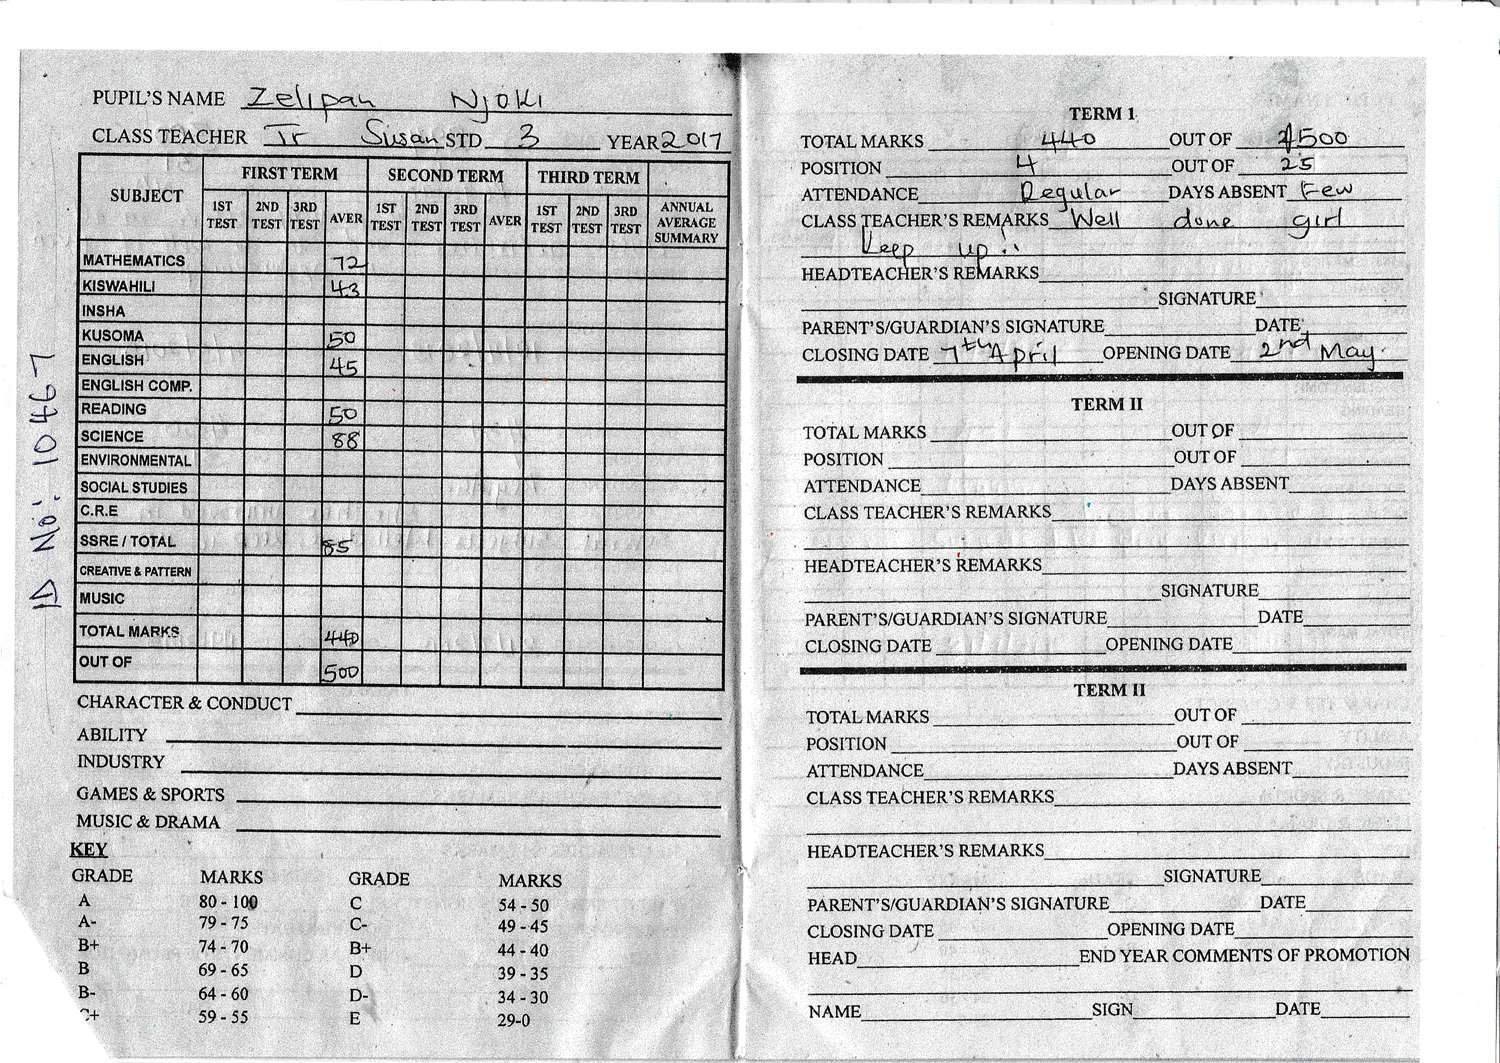 PUPIL'S NAME Zelipah Njoki
CLASS TEACHER Tr Susan STD 3 YEAR 2017
SUBJECT FIRST TERM SECOND TERM THIRD TERM
1ST TEST 2ND TEST 3RD TEST AVER 1ST TEST 2ND TEST 3RD TEST AVER 1ST TEST 2ND TEST 3RD TEST ANNUAL AVERAGE SUMMARY
MATHEMATICS 72
KISWAHILI 43
INSHA
KUSOMA 50
ENGLISH 45
ENGLISH COMP.
READING 50
SCIENCE 88
ENVIRONMENTAL
SOCIAL STUDIES
C.R.E
SSRE / TOTAL 85
CREATIVE & PATTERN
MUSIC
TOTAL MARKS 440
OUT OF 500
CHARACTER & CONDUCT
ABILITY
INDUSTRY
GAMES & SPORTS
MUSIC & DRAMA
KEY
GRADE MARKS GRADE MARKS
A 80 - 100 C 54 - 50
A- 79 - 75 C- 49 - 45
B+ 74 - 70 B+ 44 - 40
B 69 - 65 D 39 - 35
B- 64 - 60 D- 34 - 30
C+ 59 - 55 E 29-0
ID No: 10467
TERM 1
TOTAL MARKS 440 OUT OF 500
POSITION 4 OUT OF 25
ATTENDANCE Regular DAYS ABSENT Few
CLASS TEACHER'S REMARKS Well done girl
Keep up!!
HEADTEACHER'S REMARKS
SIGNATURE
PARENT'S/GUARDIAN'S SIGNATURE DATE
CLOSING DATE 7th April OPENING DATE 2nd May.
TERM II
TOTAL MARKS OUT OF
POSITION OUT OF
ATTENDANCE DAYS ABSENT
CLASS TEACHER'S REMARKS
HEADTEACHER'S REMARKS
SIGNATURE
PARENT'S/GUARDIAN'S SIGNATURE DATE
CLOSING DATE OPENING DATE
TERM II
TOTAL MARKS OUT OF
POSITION OUT OF
ATTENDANCE DAYS ABSENT
CLASS TEACHER'S REMARKS
HEADTEACHER'S REMARKS
SIGNATURE
PARENT'S/GUARDIAN'S SIGNATURE DATE
CLOSING DATE OPENING DATE
HEAD END YEAR COMMENTS OF PROMOTION
NAME SIGN DATE